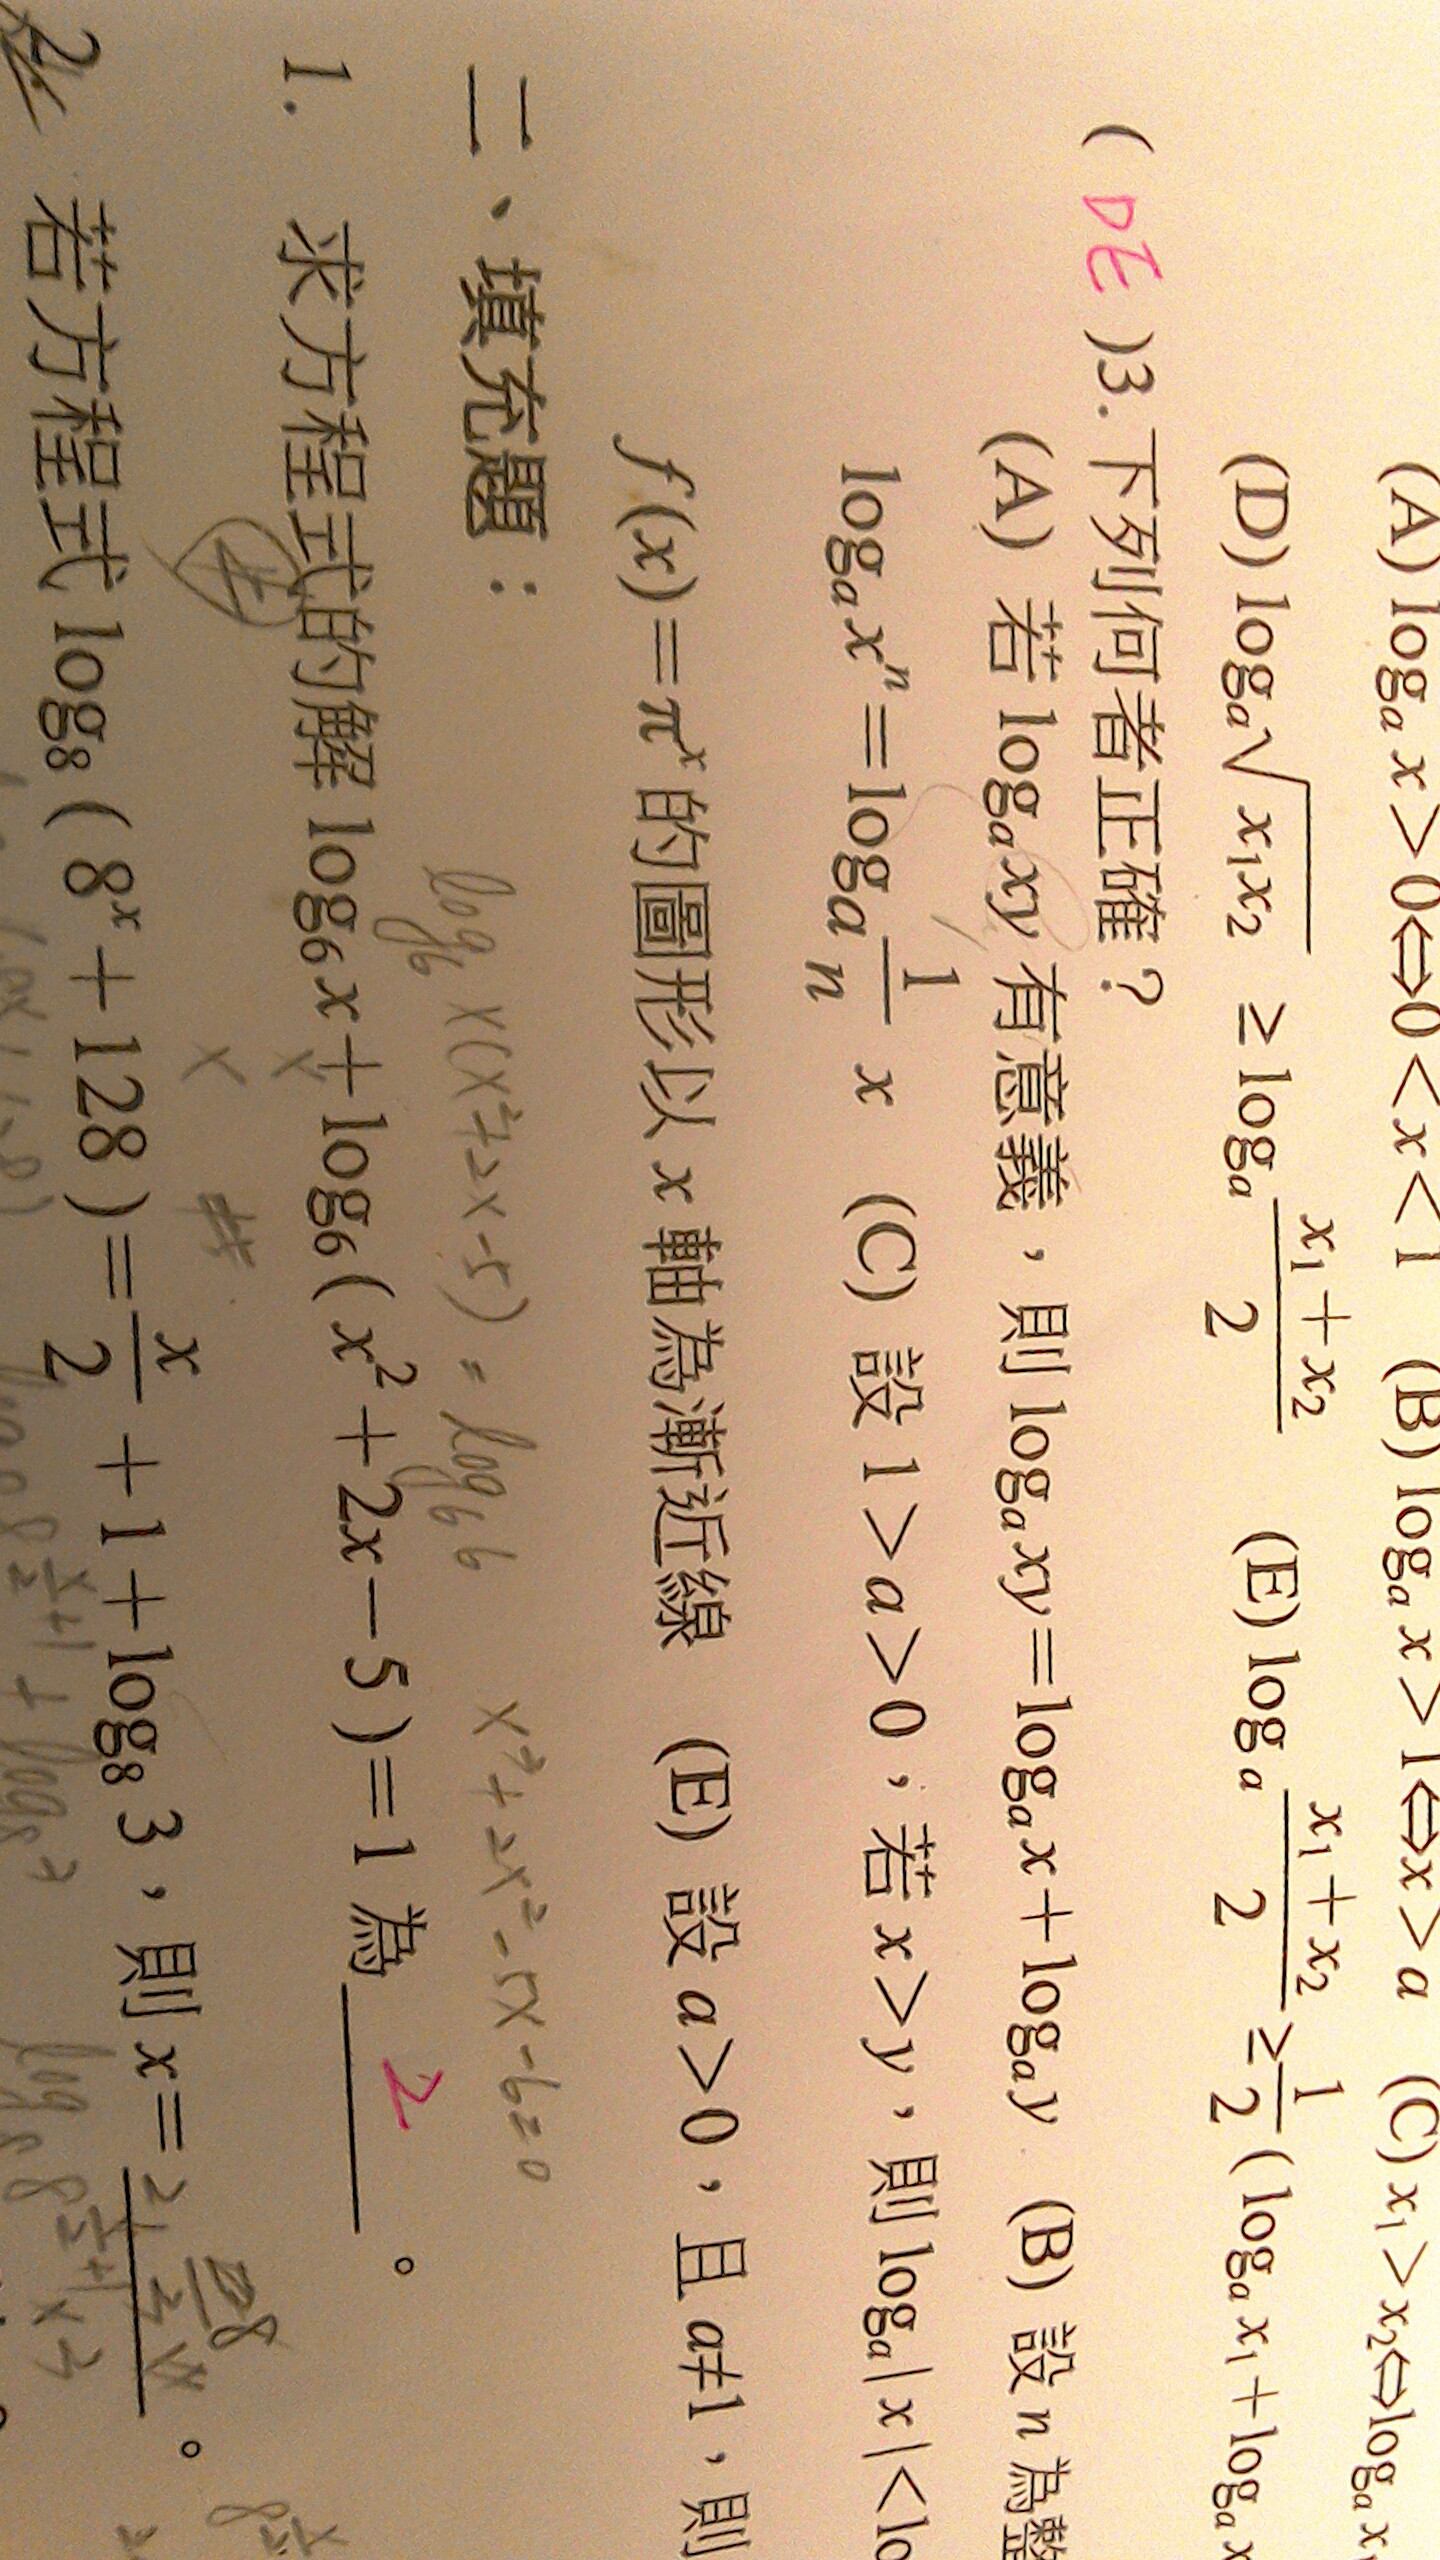 (A) logₐ x > 0 ⇔ 0 < x < 1 (B) logₐ x > 1 ⇔ x > a (C) x₁ > x₂ ⇔ logₐ x₁
(D) logₐ √(x₁x₂) ≥ logₐ (x₁ + x₂)/2 (E) logₐ (x₁ + x₂)/2 ≥ 1/2 (logₐ x₁ + logₐ x
( DE )3. 下列何者正確?
(A) 若 logₐ xy 有意義,則 logₐ xy = logₐ x + logₐ y (B) 設 n 為整
logₐ xⁿ = logₐ 1/n x (C) 設 1 > a > 0,若 x > y,則 logₐ | x | < lo
f(x) = πˣ 的圖形以 x 軸為漸近線 (E) 設 a > 0,且 a≠1,則
二、填充題:
log₆ x(x²+2x-5) = log₆ 6 x³+2x²-5x-6=0
1. 求方程式的解 log₆ x + log₆ ( x² + 2x − 5 ) = 1 為 2 。
2. 若方程式 log₈ ( 8ˣ + 128 ) = x/2 + 1 + log₈ 3,則 x = 。